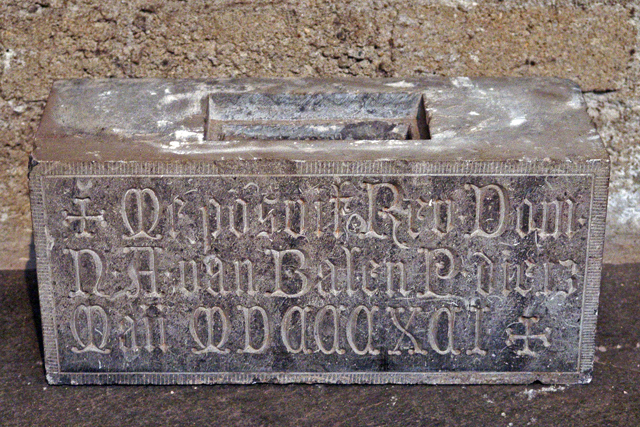 + Me posuit Rev·Dom·
N·A·van Balen P·die 13
Maii MDCCCXCI +